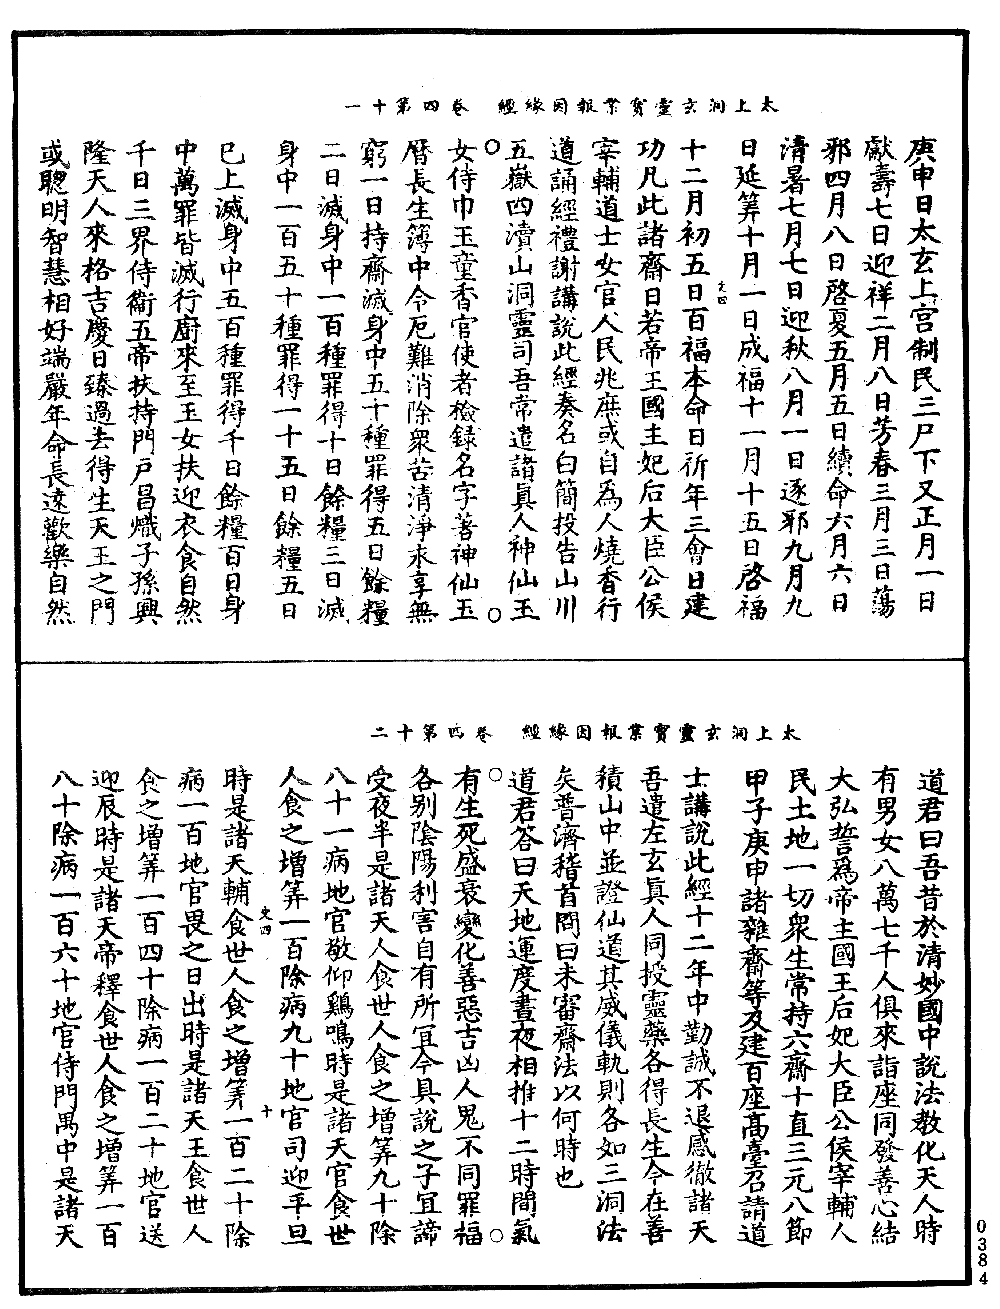 太上洞玄靈寳業報因緣經　卷四第十一
庚申日太玄上宫制民三尸下又正月一日
獻壽七日迎祥二月八日芳春三月三日蕩
邪四月八日啓夏五月五日續命六月六日
清暑七月七日迎秋八月一日逐邪九月九
日延筭十月一日成福十一月十五日啓福
文四
十二月初五日百福本命日祈年三會日建
功凡此諸齋日若帝王國主妃后大臣公侯
宰輔道士女官人民兆庶或自爲人燒香行
道誦經禮謝講説此經奏名白簡投告山川
五嶽四瀆山洞靈司吾常遣諸眞人神仙玉
女侍巾玉童香官使者檢録名字善神仙玉
曆長生簿中令厄難消除衆苦清淨來享無
窮一日持齋滅身中五十種罪得五日餘糧
二日滅身中一百種罪得十日餘糧三日滅
身中一百五十種罪得一十五日餘糧五日
已上滅身中五百種罪得千日餘糧百日身
中萬罪皆滅行廚來至玉女扶迎衣食自然
千日三界侍衛五帝扶持門户昌熾子孫興
隆天人來格吉慶日臻過去得生天王之門
或聦明智慧相好端嚴年命長遠歡樂自然
太上洞玄靈寳業報因緣經　卷四第十二
道君曰吾昔於清妙國中説法教化天人時
有男女八萬七千人俱來詣座同發善心結
大弘誓爲帝主國王后妃大臣公侯宰輔人
民土地一切衆生常持六齋十直三元八節
甲子庚申諸雜齋等及建百座高臺召請道
士講説此經十二年中勤誠不退感徹諸天
吾遣左玄眞人同授靈藥各得長生今在善
積山中並證仙道其威儀軌則各如三洞法
矣普濟稽首問曰未審齋法以何時也
道君荅曰天地運度晝夜相推十二時間氣
有生死盛衰變化善惡吉凶人鬼不同罪福
各别陰陽利害自有所宜今具説之子宜諦
受夜半是諸天人食世人食之增筭九十除
八十一病地官敬仰鷄鳴時是諸天官食世
人食之增筭一百除病九十地官司迎平旦
文四　十
時是諸天輔食世人食之增筭一百二十除
病一百地官畏之日出時是諸天王食世人
食之增筭一百四十除病一百二十地官送
迎辰時是諸天帝釋食世人食之增筭一百
八十除病一百六十地官侍門禺中是諸天
0384